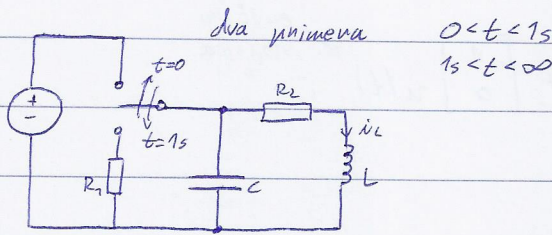 dva primera 0<t<1s
1s<t<∞
t=0
+
-
t=1s
R₂
i_L
R₁
C
L